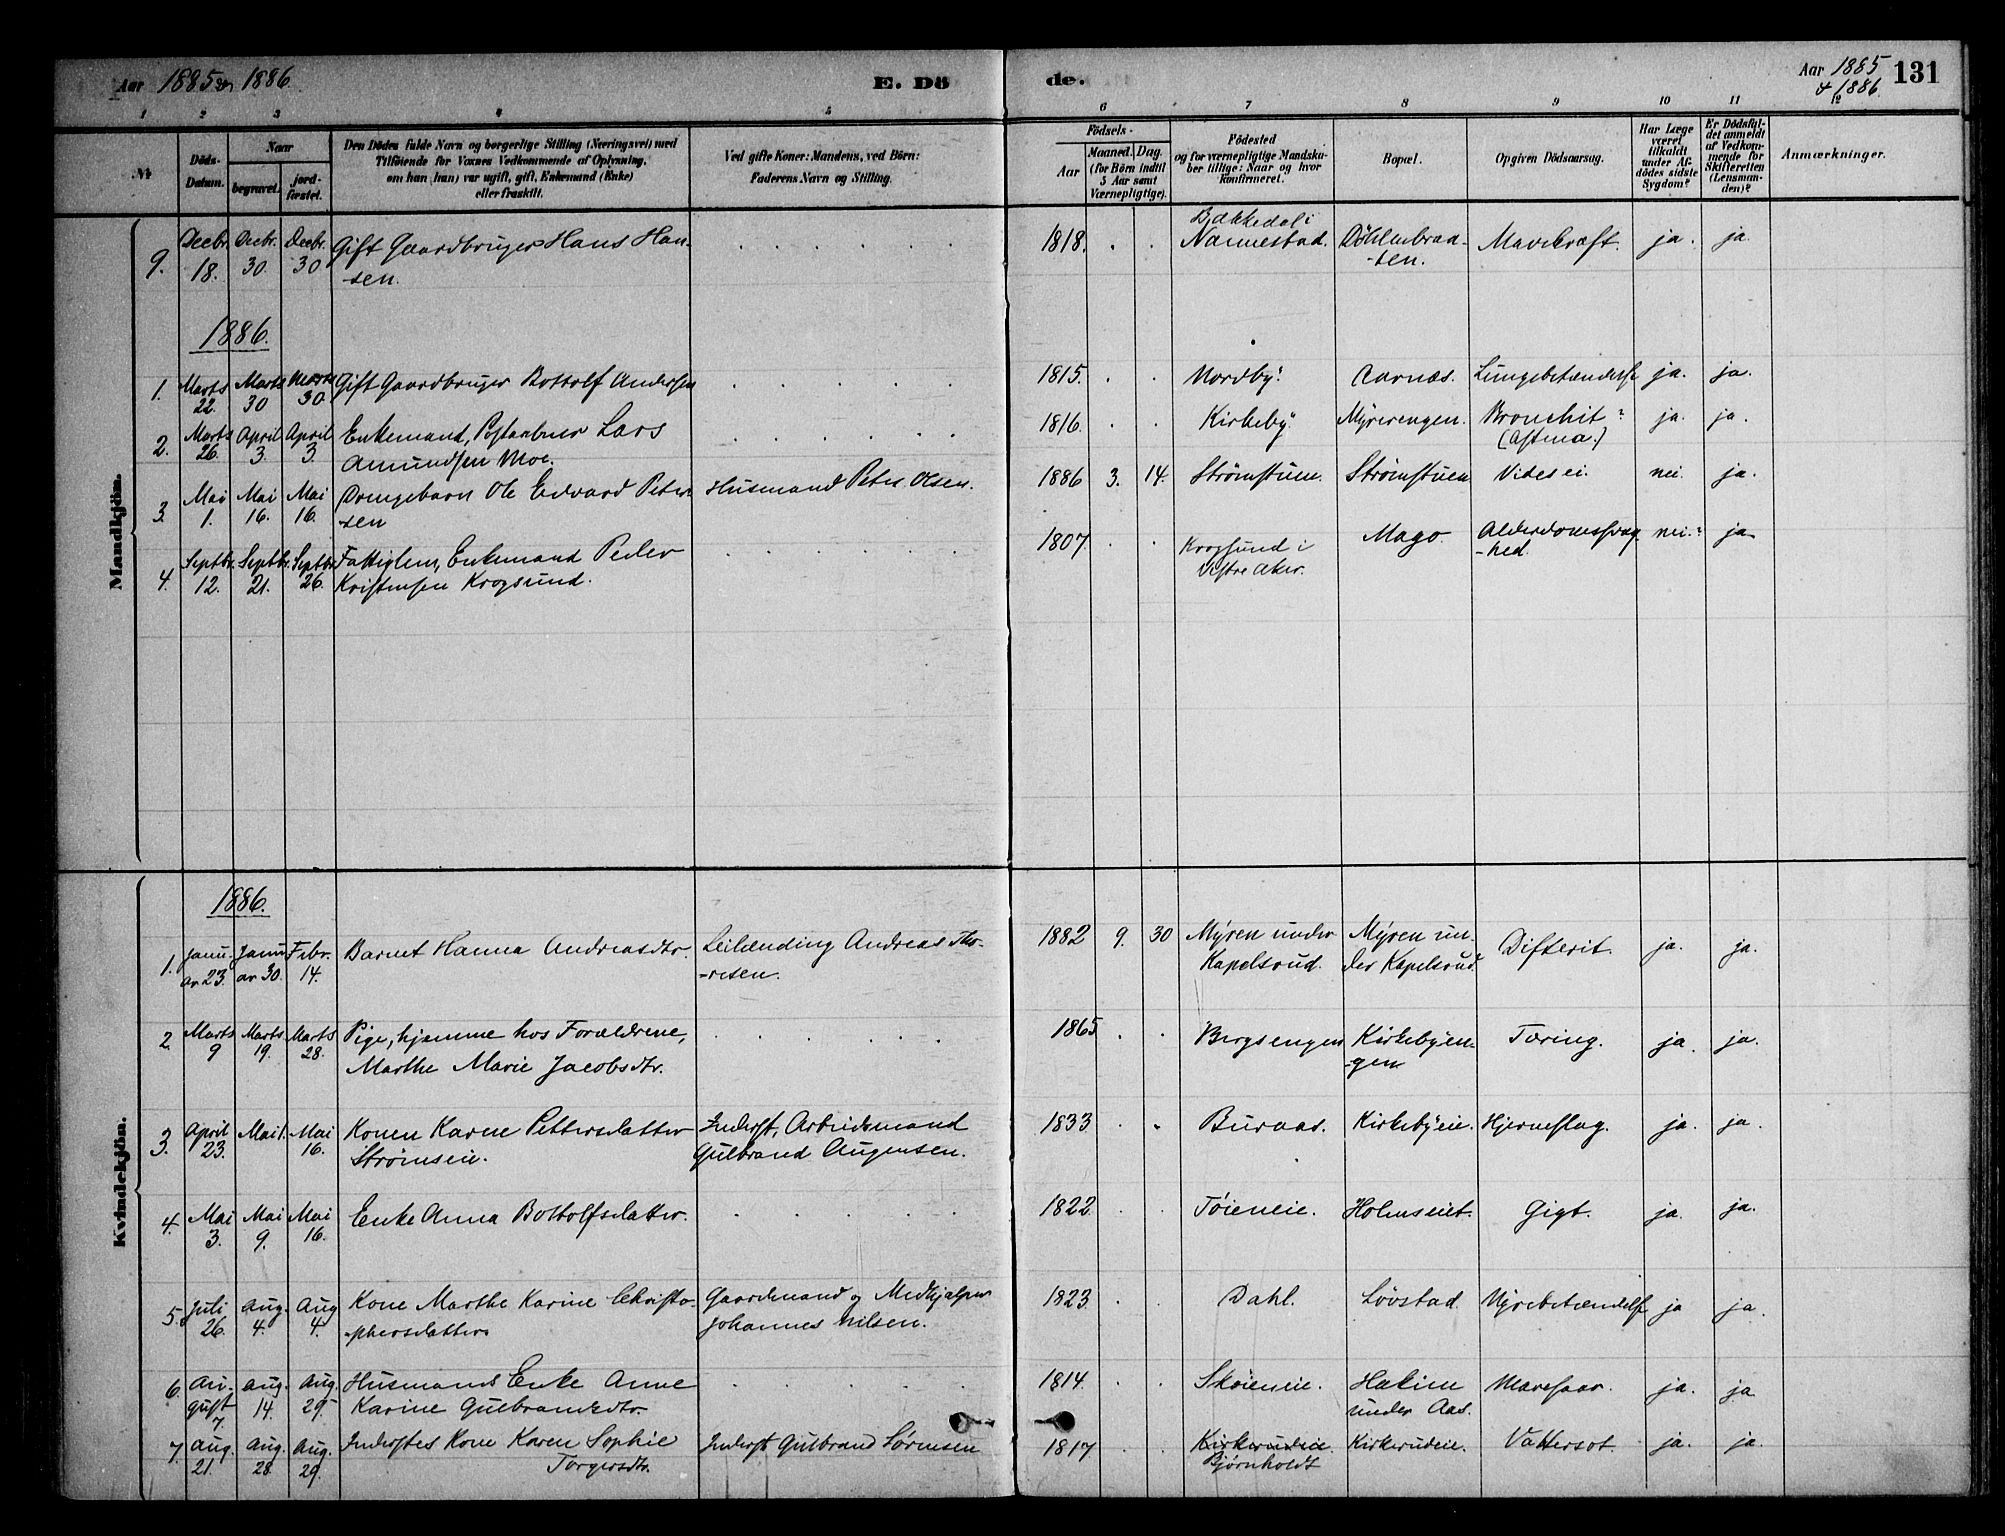 Aar 1885 og 1886
E. Dö
de.
Aar 1885
& 1886
131
1 2 3 4 5 6 7 8 9 10 11 12
№
Döds-
Datum.
Naar
begravet.
jord-
fæstet.
Den Dödes fulde Navn og borgerlige Stilling (Næringsvei) med
Tilföiende for Voxnes Vedkommende af Oplysning,
om han (hun) var ugift, gift, Enkemand (Enke)
eller fraskilt.
Ved gifte Koner: Mandens, ved Börn:
Faderens Navn og Stilling.
Födsels-
Aar
Maaned. Dag.
(for Börn indtil
5 Aar samt
Værnepligtige).
Födested
og for værnepligtige Mandska-
ber tillige: Naar og hvor
konfirmeret.
Bopæl.
Opgiven Dödsaarsag.
Har Læge
været
tilkaldt
under Af-
dødes sidste
Sygdom?
Er Dödsfal-
det anmeldt
af Vedkom-
mende for
Skifteretten
(Lensman-
den)?
Anmærkninger.
Mandkjön.
9. Decbr. 18. Decbr. 30. Decbr. 30 Gift Gaardbruger Hans Han-
sen. 1818. Bakkedal i
Nannestad. Döhlenbraa-
ten. Mavekræft. ja. ja.
1886.
1. Marts 22. Marts 30 Marts 30 Gift Gaardbruger Bottolf Andersen 1815. Nordby. Aarnæs. Lungebetændelse ja. ja.
2. Marts 26. April 3. April 3. Enkemand, Postaabner Lars
Amundsen Moe. 1816. Kirkeby. Myrerengen. Bronchit?
(Astma.) ja. ja.
3. Mai 1. Mai 16. Mai 16. Drengebarn Ole Edvard Peter-
sen Husmand Peter Olsen. 1886 3. 14. Strömstuen. Strömstuen Vides ei. nei. ja.
4. Septbr. 12. Septbr. 21. Septbr. 26. Fattiglem, Enkemand Peder
Kristensen Krogsund. 1807. Krogsund i
Vestre Aker. Mago. Alderdomssvag-
hed. nei.? ja
Kvindekjön.
1886.
1. Janu-
ar 23. Janu-
ar 30. Febr. 14. Barnet Hanna Andreasdtr. Leilænding Andreas Tho-
resen. 1882 9. 30 Myren under
Kapelsrud. Myren un-
der Kapelsrud. Difterit. ja. ja.
2. Marts 9 Marts 19. Marts 28. Pige, hjemme hos Forældrene,
Marthe Marie Jacobsdtr. 1865 Bergsengen Kirkebyen-
gen Tæring. ja. ja.
3. April 23. Mai 1. Mai 16. Konen Karen Pettersdatter
Strömseie. Inderst, Arbeidsmand
Gulbrand Augensen. 1833 Buraas. Kirkebyeie. Hjerneslag. ja. ja.
4. Mai 3. Mai 9. Mai 16. Enke Anna Bottolfsdatter. 1822. Töieneie. Holmseiet. Gigt. ja. ja.
5. Juli 26. Aug. 4. Aug 4. Kone Marthe Karine Christo-
phersdatter Gaardmand og Medhjælper
Johannes Nilsen. 1823. Dahl. Lövstad. Nyrebetændelse ja ja.
6. Au-
gust 7. Aug. 14. Aug. 29. Husmands Enke Anne
Karine Gulbrandsdtr. 1814. Sköieneie. Hakim
under Aas. Mavesaar. ja. ja
7. Aug. 21. Aug. 28. Aug. 29. Inderstes Kone Karen Sophie
Torgersdtr. Inderst Gulbrand Sörensen 1817 Kirkerudeie
Bjørnholdt Kirkerudeie. Vattersot. ja. ja.